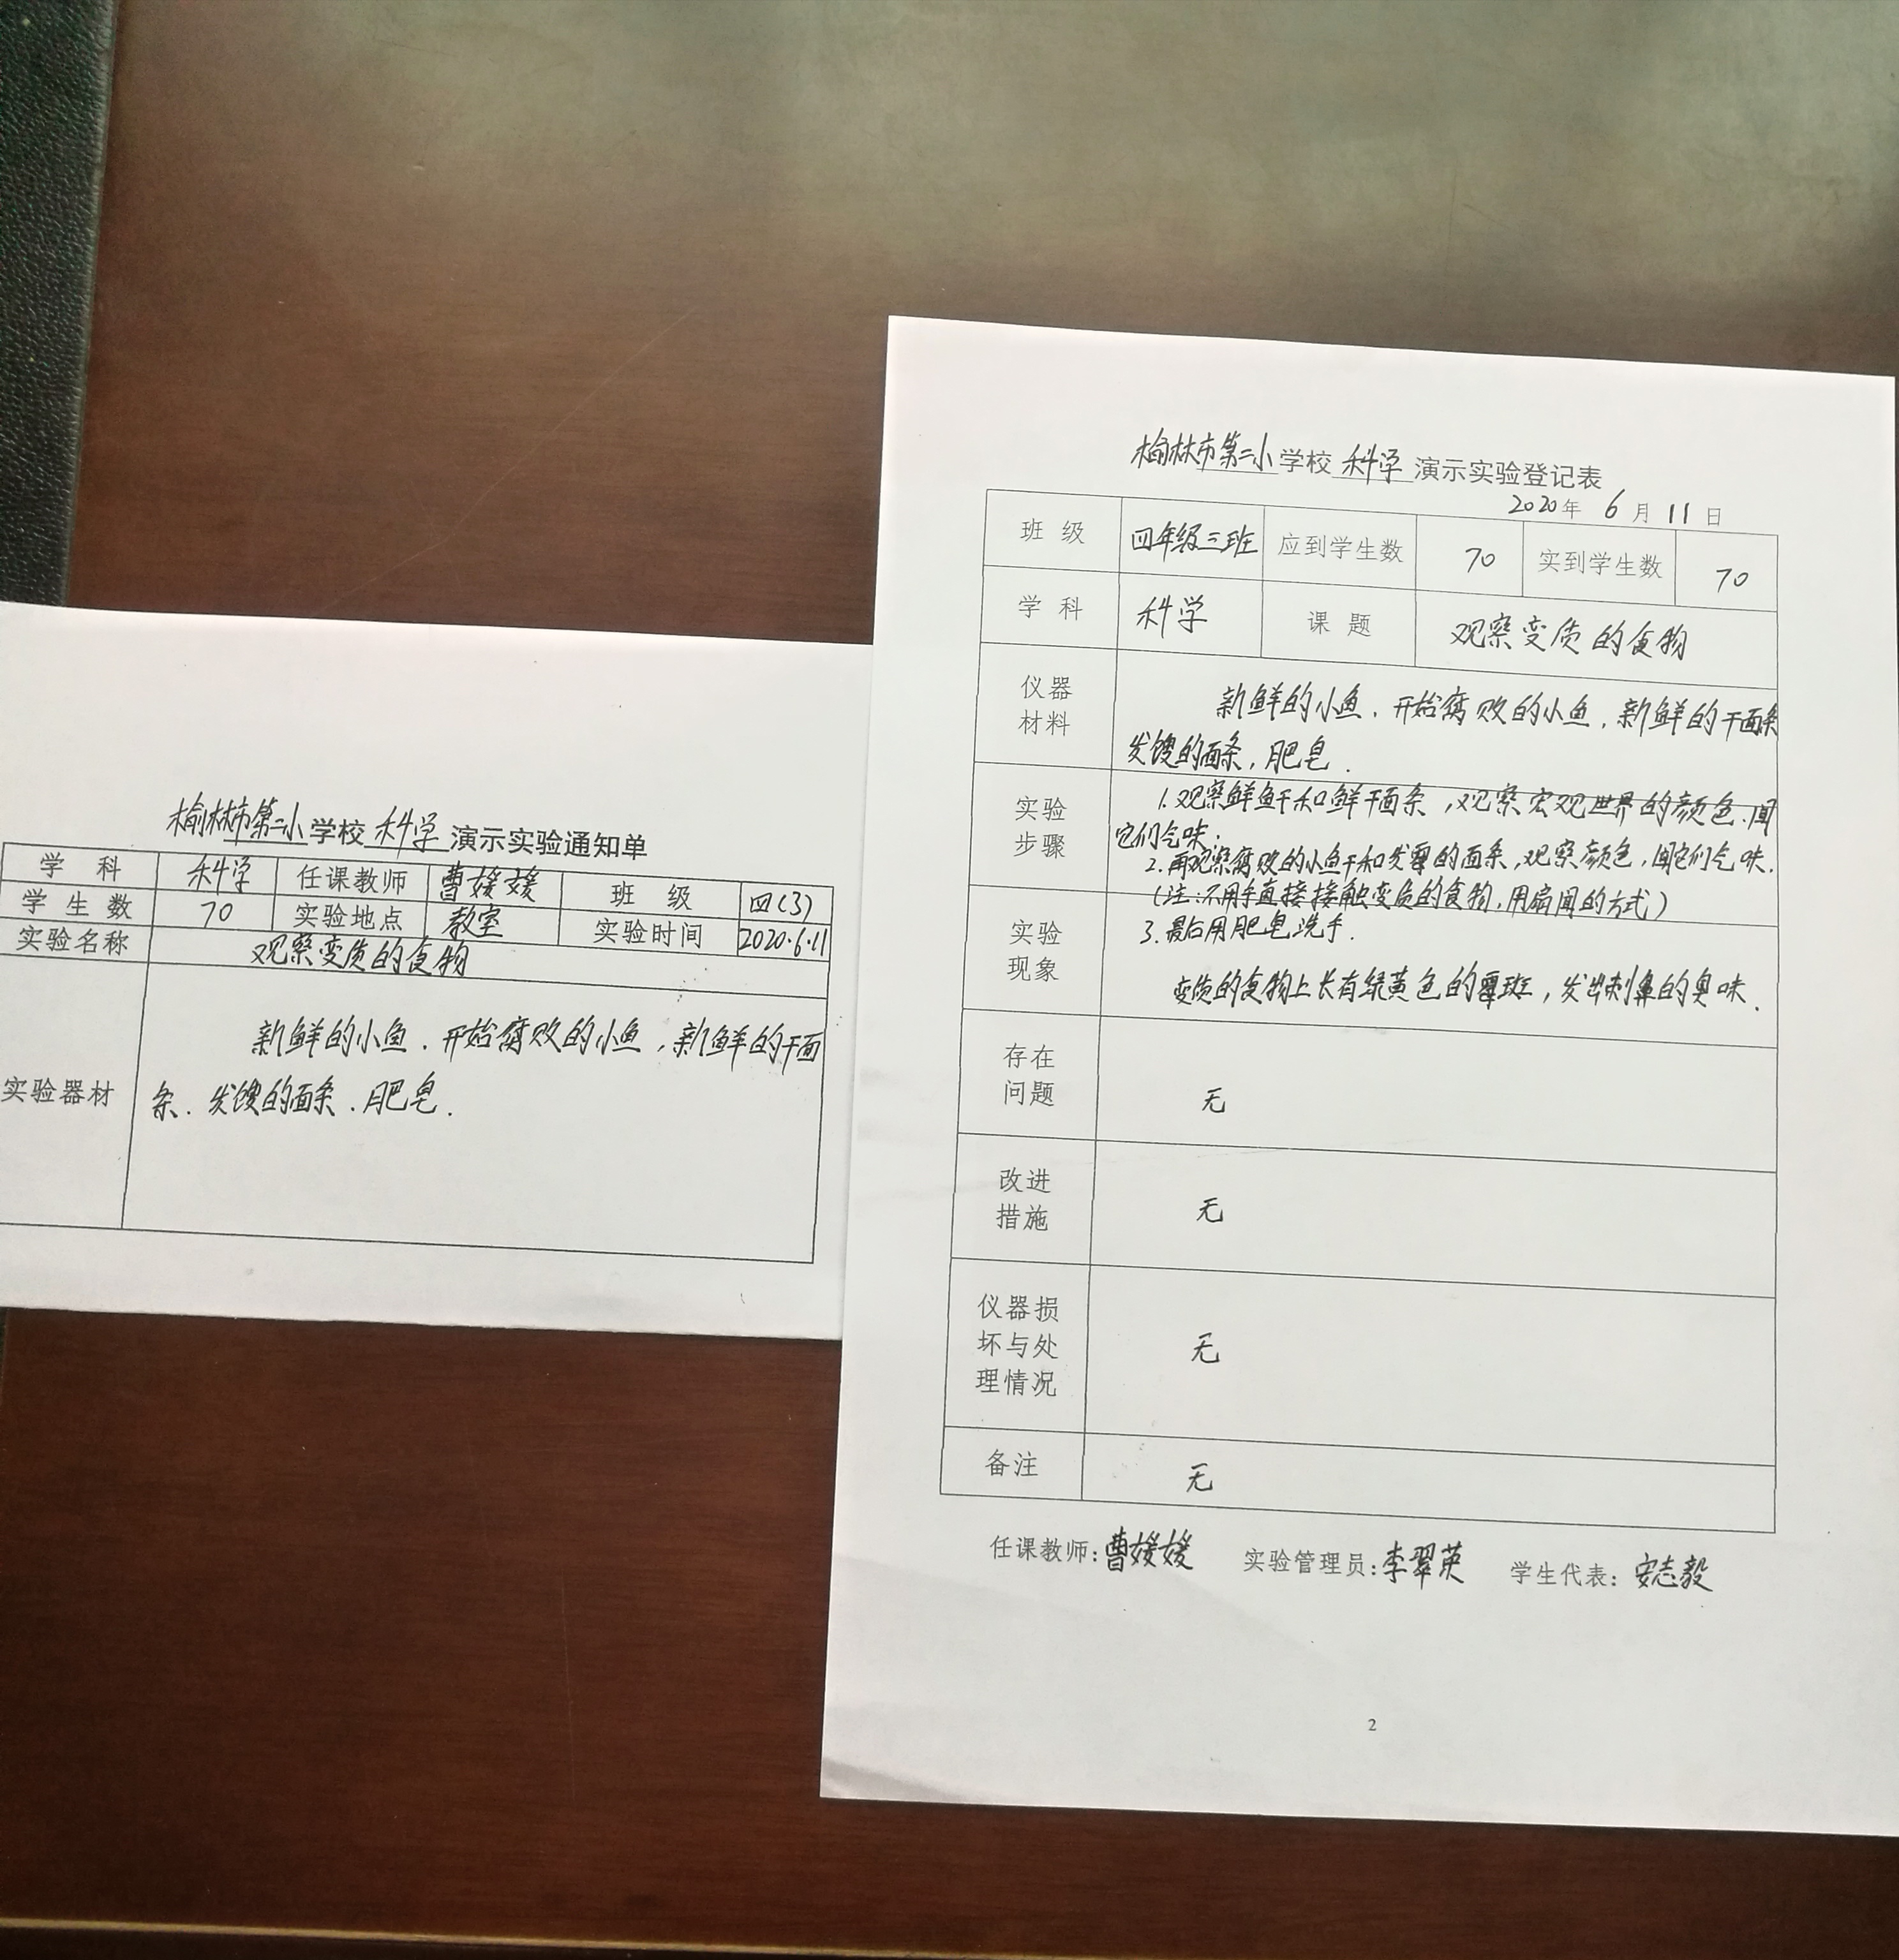 榆林市第二小学校科学演示实验通知单
学 科 科学 任课教师 曹媛媛 班 级 四(3)
学 生 数 70 实验地点 教室 实验时间 2020.6.11
实验名称 观察变质的食物
实验器材
新鲜的小鱼.开始腐败的小鱼,新鲜的干面
条.发馊的面条.肥皂.
榆林市第二小学校科学演示实验登记表
2020年 6 月 11 日
班 级 四年级三班 应到学生数 70 实到学生数 70
学 科 科学 课 题 观察变质的食物
仪器
材料
新鲜的小鱼.开始腐败的小鱼,新鲜的干面条
发馊的面条,肥皂.
实验
步骤
1.观察鲜鱼干和鲜干面条,观察宏观世界的颜色.闻
它们气味.
2.再观察腐败的小鱼干和发霉的面条,观察颜色,闻它们气味.
(注:不用手直接接触变质的食物,用扇闻的方式)
3.最后用肥皂洗手.
实验
现象
变质的食物上长有绿黄色的霉斑,发出刺鼻的臭味.
存在
问题
无
改进
措施
无
仪器损
坏与处
理情况
无
备注 无
任课教师:曹媛媛 实验管理员:李翠英 学生代表:安志毅
2